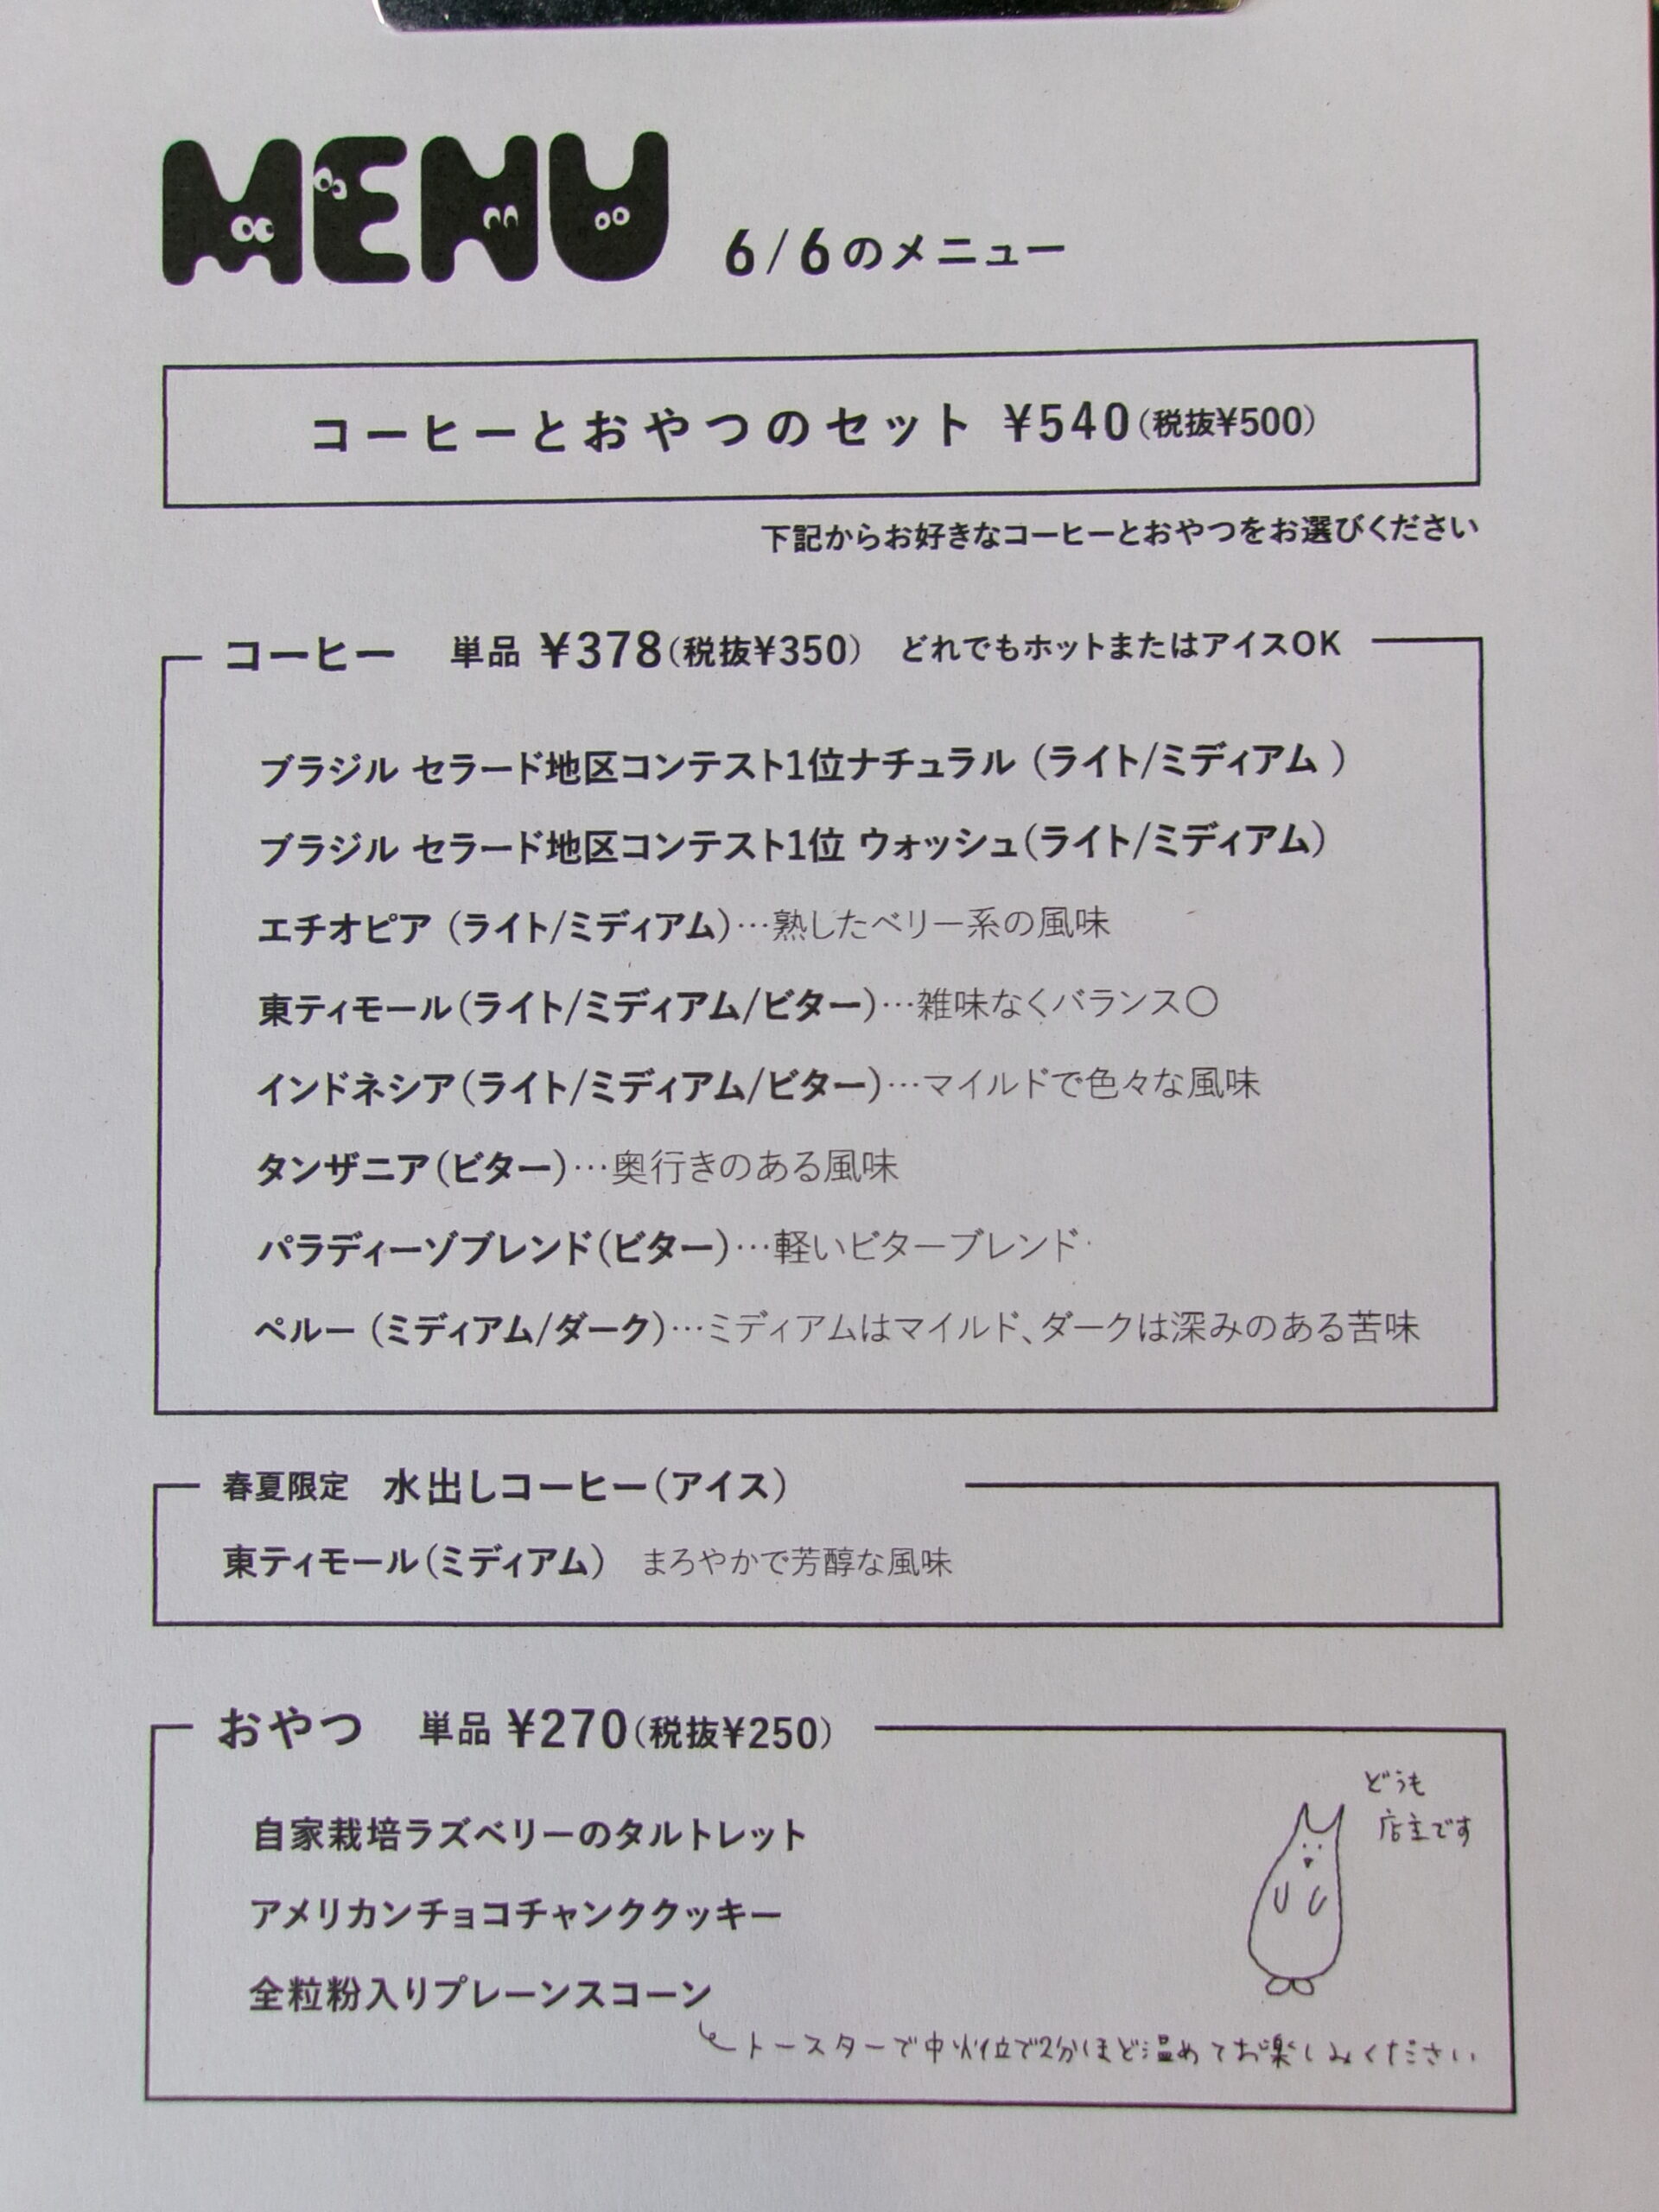 MENU 6/6のメニュー
コーヒーとおやつのセット ¥540(税抜¥500)
下記からお好きなコーヒーとおやつをお選びください
コーヒー 単品 ¥378(税抜¥350) どれでもホットまたはアイスOK
ブラジル セラード地区コンテスト1位ナチュラル (ライト/ミディアム )
ブラジル セラード地区コンテスト1位 ウォッシュ(ライト/ミディアム)
エチオピア (ライト/ミディアム)…熟したベリー系の風味
東ティモール(ライト/ミディアム/ビター)…雑味なくバランス〇
インドネシア(ライト/ミディアム/ビター)…マイルドで色々な風味
タンザニア(ビター)…奥行きのある風味
パラディーゾブレンド(ビター)…軽いビターブレンド
ペルー (ミディアム/ダーク)…ミディアムはマイルド、ダークは深みのある苦味
春夏限定 水出しコーヒー(アイス)
東ティモール(ミディアム) まろやかで芳醇な風味
おやつ 単品 ¥270(税抜¥250)
どうも
店主です
自家栽培ラズベリーのタルトレット
アメリカンチョコチャンククッキー
全粒粉入りプレーンスコーン
トースターで中火位で2分ほど温めてお楽しみください